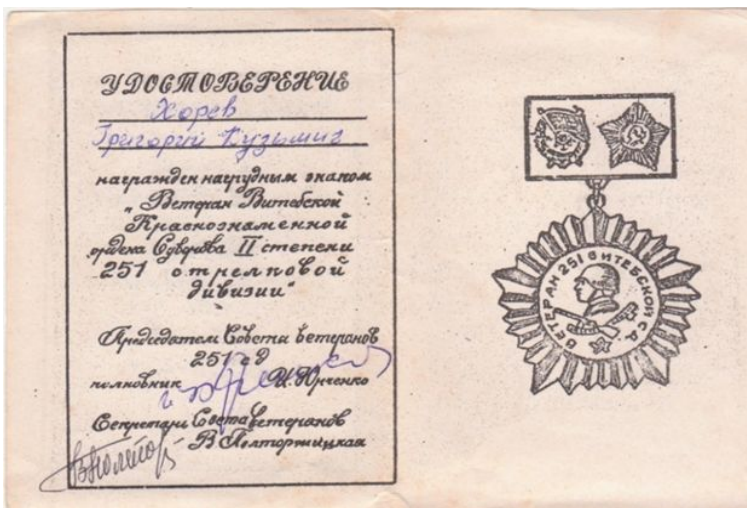 УДОСТОВЕРЕНИЕ
Хорев
Григорий Кузьмич
награжден нагрудным знаком
„Ветеран Витебской
Краснознаменной
ордена Суворова II степени
251 стрелковой
дивизии"
Председатель Совета ветеранов
251 сд
полковник И. Юрченко
Секретарь Совета ветеранов
В. Полторжицкая
ВЕТЕРАН 251 ВИТЕБСКОЙ С.Д.